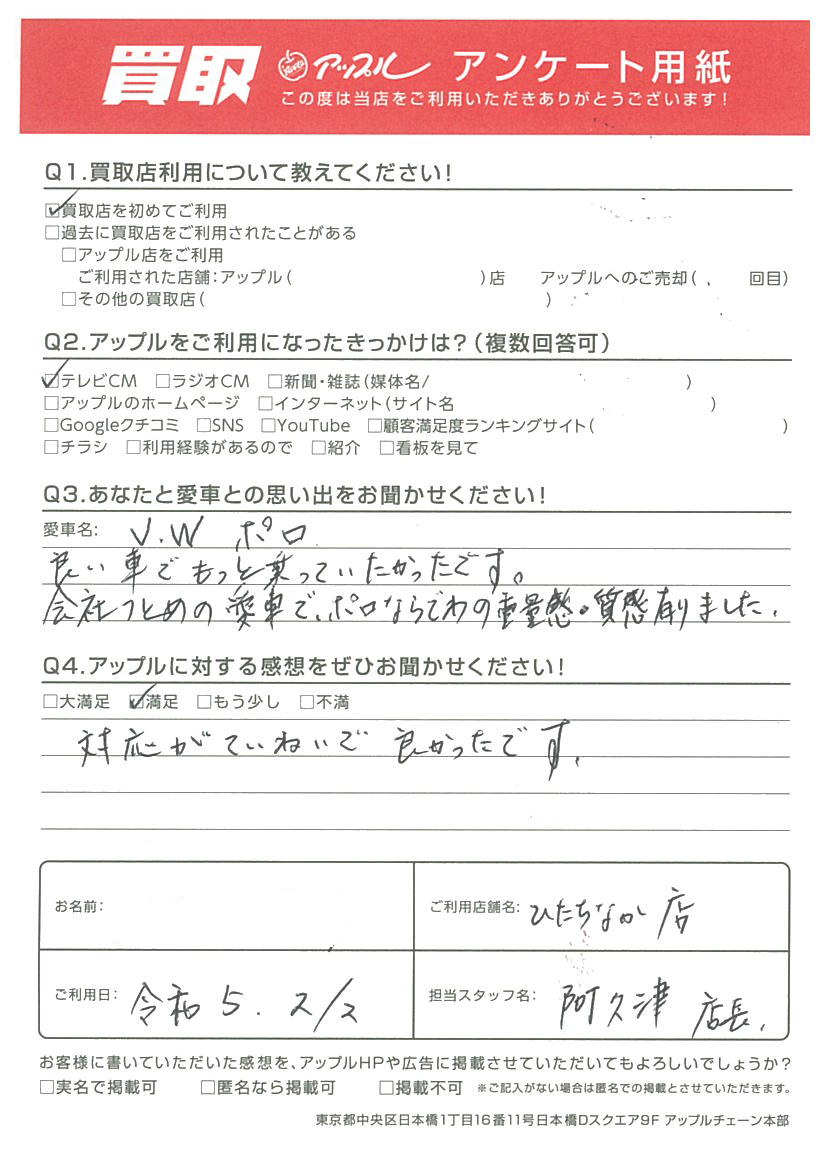 買取 アップル アンケート用紙
この度は当店をご利用いただきありがとうございます!
Q1.買取店利用について教えてください!
☑買取店を初めてご利用
□過去に買取店をご利用されたことがある
□アップル店をご利用
ご利用された店舗:アップル( )店 アップルへのご売却( 回目)
□その他の買取店( )
Q2.アップルをご利用になったきっかけは?(複数回答可)
☑テレビCM □ラジオCM □新聞・雑誌(媒体名/ )
□アップルのホームページ □インターネット(サイト名 )
□Googleクチコミ □SNS □YouTube □顧客満足度ランキングサイト( )
□チラシ □利用経験があるので □紹介 □看板を見て
Q3.あなたと愛車との思い出をお聞かせください!
愛車名: V.W ポロ
良い車でもっと乗っていたかったです。
会社つとめの愛車で、ポロならでわの重量感・質感有りました.
Q4.アップルに対する感想をぜひお聞かせください!
□大満足 ☑満足 □もう少し □不満
対応がていねいで良かったです.
お名前:
ご利用店舗名: ひたちなか店
ご利用日: 令和5. 2/2
担当スタッフ名: 阿久津 店長.
お客様に書いていただいた感想を、アップルHPや広告に掲載させていただいてもよろしいでしょうか?
□実名で掲載可 □匿名なら掲載可 □掲載不可 ※ご記入がない場合は匿名での掲載とさせていただきます。
東京都中央区日本橋1丁目16番11号日本橋Dスクエア9F アップルチェーン本部